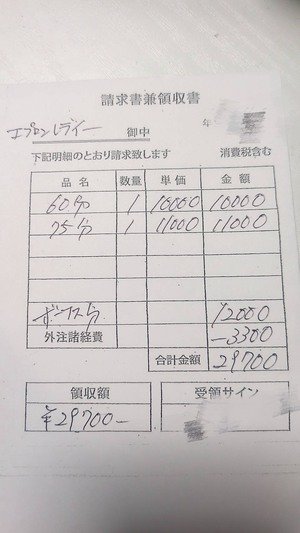 請求書兼領収書
年
エプロンレディー 御中
下記明細のとおり請求致します 消費税含む
品名 数量 単価 金額
60分 1 10000 10000
75分 1 11000 11000
ボーナス分 12000
外注諸経費 -3300
合計金額 29700
領収額 受領サイン
¥29700-